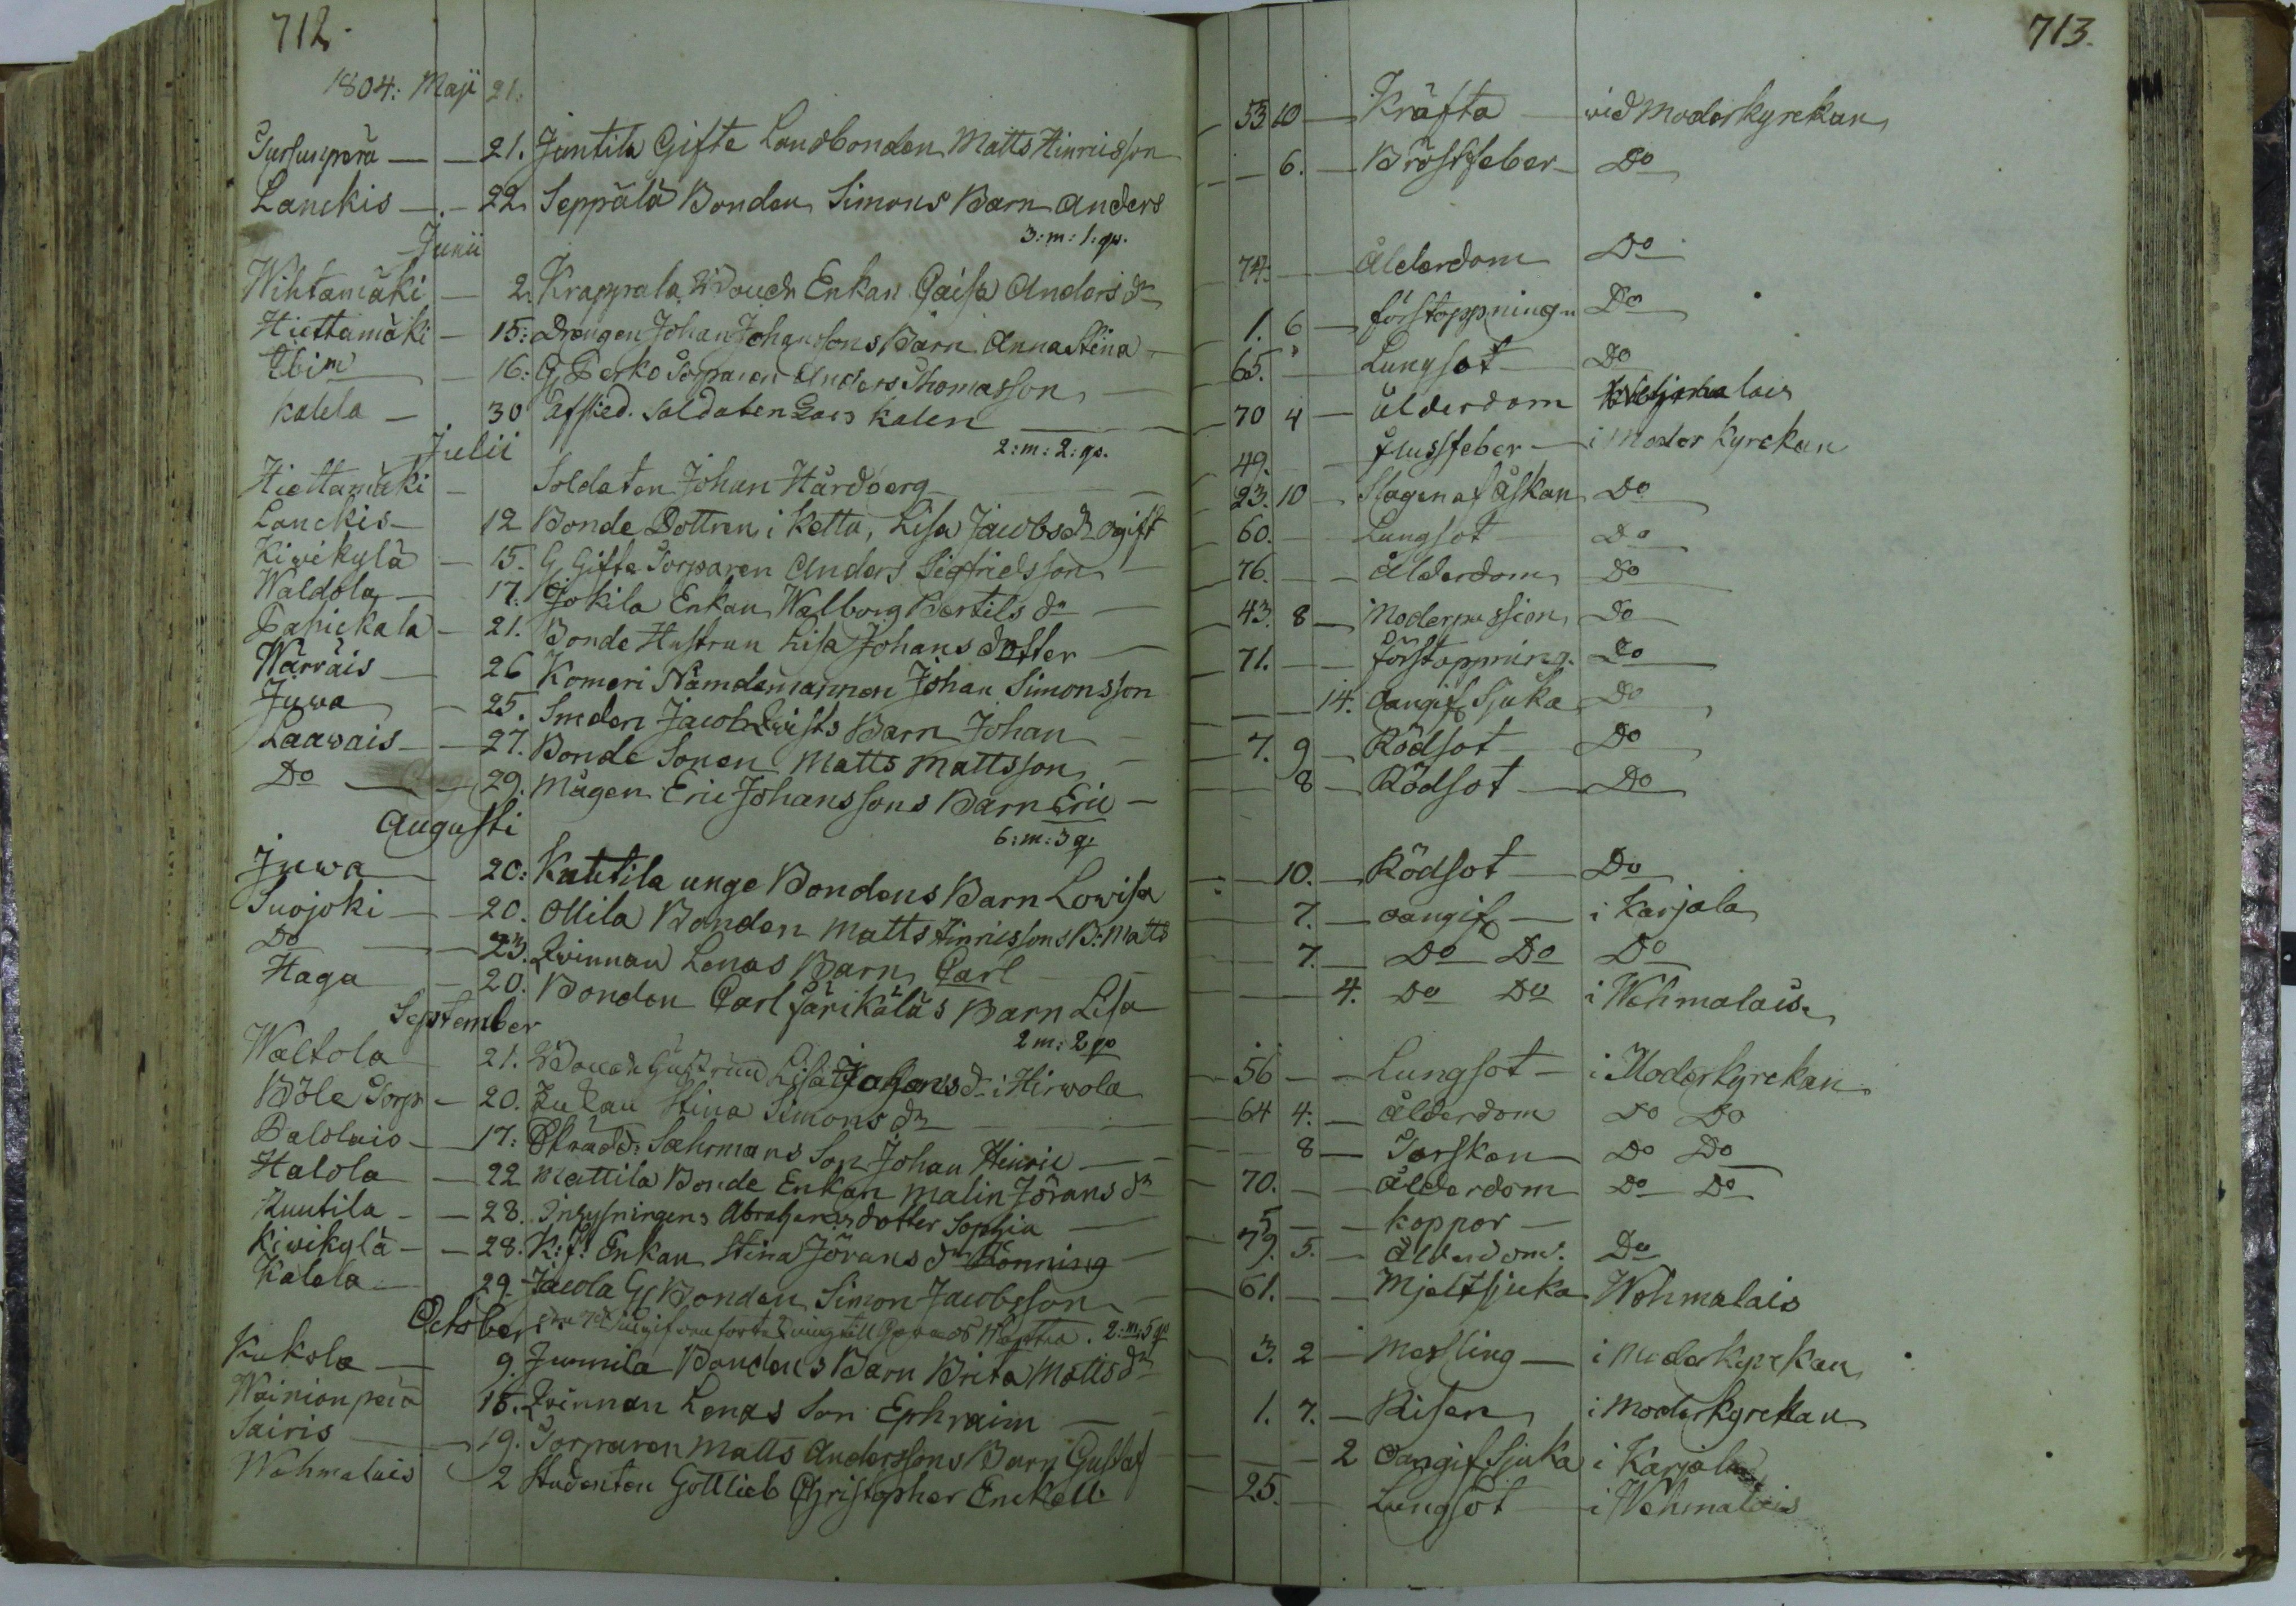 712.
1804: Maji 21.
21. Juntila Gifte Landbonden Matts Hinricsson
Lanckis 22. Seppälä Bonden Simons Barn Anders
3: m: 1: qv.
Junii
Wihtamäki 2. Krappala Enkan Caisa Anders dr
Hiettamäki 15: Drängen Johan Johanssons Barn Anna Stina
Ibim 16: G. Perko Torparen Anders Thomasson
Kalela 30 afsked. Soldaten Lars Kalen
2: m: 2: qv.
Julii
Hiettamäki Soldaten Johan Hårdberg
Lanckis 12 Bonde Dottren i Kettu, Lisa Jacobs dr ogift
Kivikylä 15. G. Gifte Torparen Anders Sigfridsson
Waldola 17. Jokila Enkan Walborg Bertils dr
Pahickala 21. Bonde Hustrun Lisa Johans dotter
Wärräis 26 Komeri Nämdemannen Johan Simonsson
Juwa 25. Smeden Jacob Qvists Barn Johan
Laawais 27. Bonde Sonen Matts Mattsson
Do 29. Mågen Eric Johanssons Barn Eric
6: m: 3 q.
Augusti
Juwa 20: Kuutila unge Bondens Barn Lowisa
Suojoki 20. Ollila Bonden Matts Hinricssons B: Matts
Do 23. Qvinnan Lenas Barn Carl
Haga 20. Bonden Carl Järikäläs Barn Lisa
2 m: 2 qv
September
Waltola 21. Hustrun Lisa Johans dr i Hirwola
Böle Torp 20. Enkan Stina Simons dr
Palolais 17: Sahrmans Son Johan Hinric
Halola 22 Mattila Bonde Enkan Malin Jörans dr
Kuutila 28. Inhysningens Abrahams dotter Sophia
Kivikylä 28. K: f: Enkan Stina Jörans dr Konning
Kalela 29. Jacola G. Bonden Simon Jacobsson
2: m: 5 qv
October
Kukola 9. Junnila Bondens Barn Brita Matts dr
Wainionperä 15. Qvinnan Lenas Son Ephraim
Sairis 19. Torparen Matts Anderssons Barn Gustaf
Wehmalais 2 Studenten Gottlieb Christopher Enckell
713.
53 10 Kräfta wid Moderkyrckan
6. Bröstfeber Do
74. ålderdom Do
1. 6 förstoppning Do
65. Lungsot Do
70 4 ålderdom
49. flussfeber i Moderkyrckan
23. 10 Slagen af åskan Do
60. Lungsot Do
76. ålderdom Do
43. 8 Moderpassion Do
71. förstoppning. Do
14. oangif. Sjuka Do
7. 9 Rödsot Do
8 Rödsot Do
10. Rödsot Do
7. oangif i Karjala
7. Do Do Do
4. Do Do i Wehmalais
56 Lungsot i Moderkyrckan
64 4. ålderdom Do Do
8 Torsken Do Do
70. ålderdom Do Do
5 koppor
79. 5. ålderdom. Do
61. Mjeltsjuka Wehmalais
3. 2 Messling i Moderkyrckan
1. 7. Risen i Moderkyrckan
2 oangif Sjuka i Karjala
25. Lungsot i Wehmalais